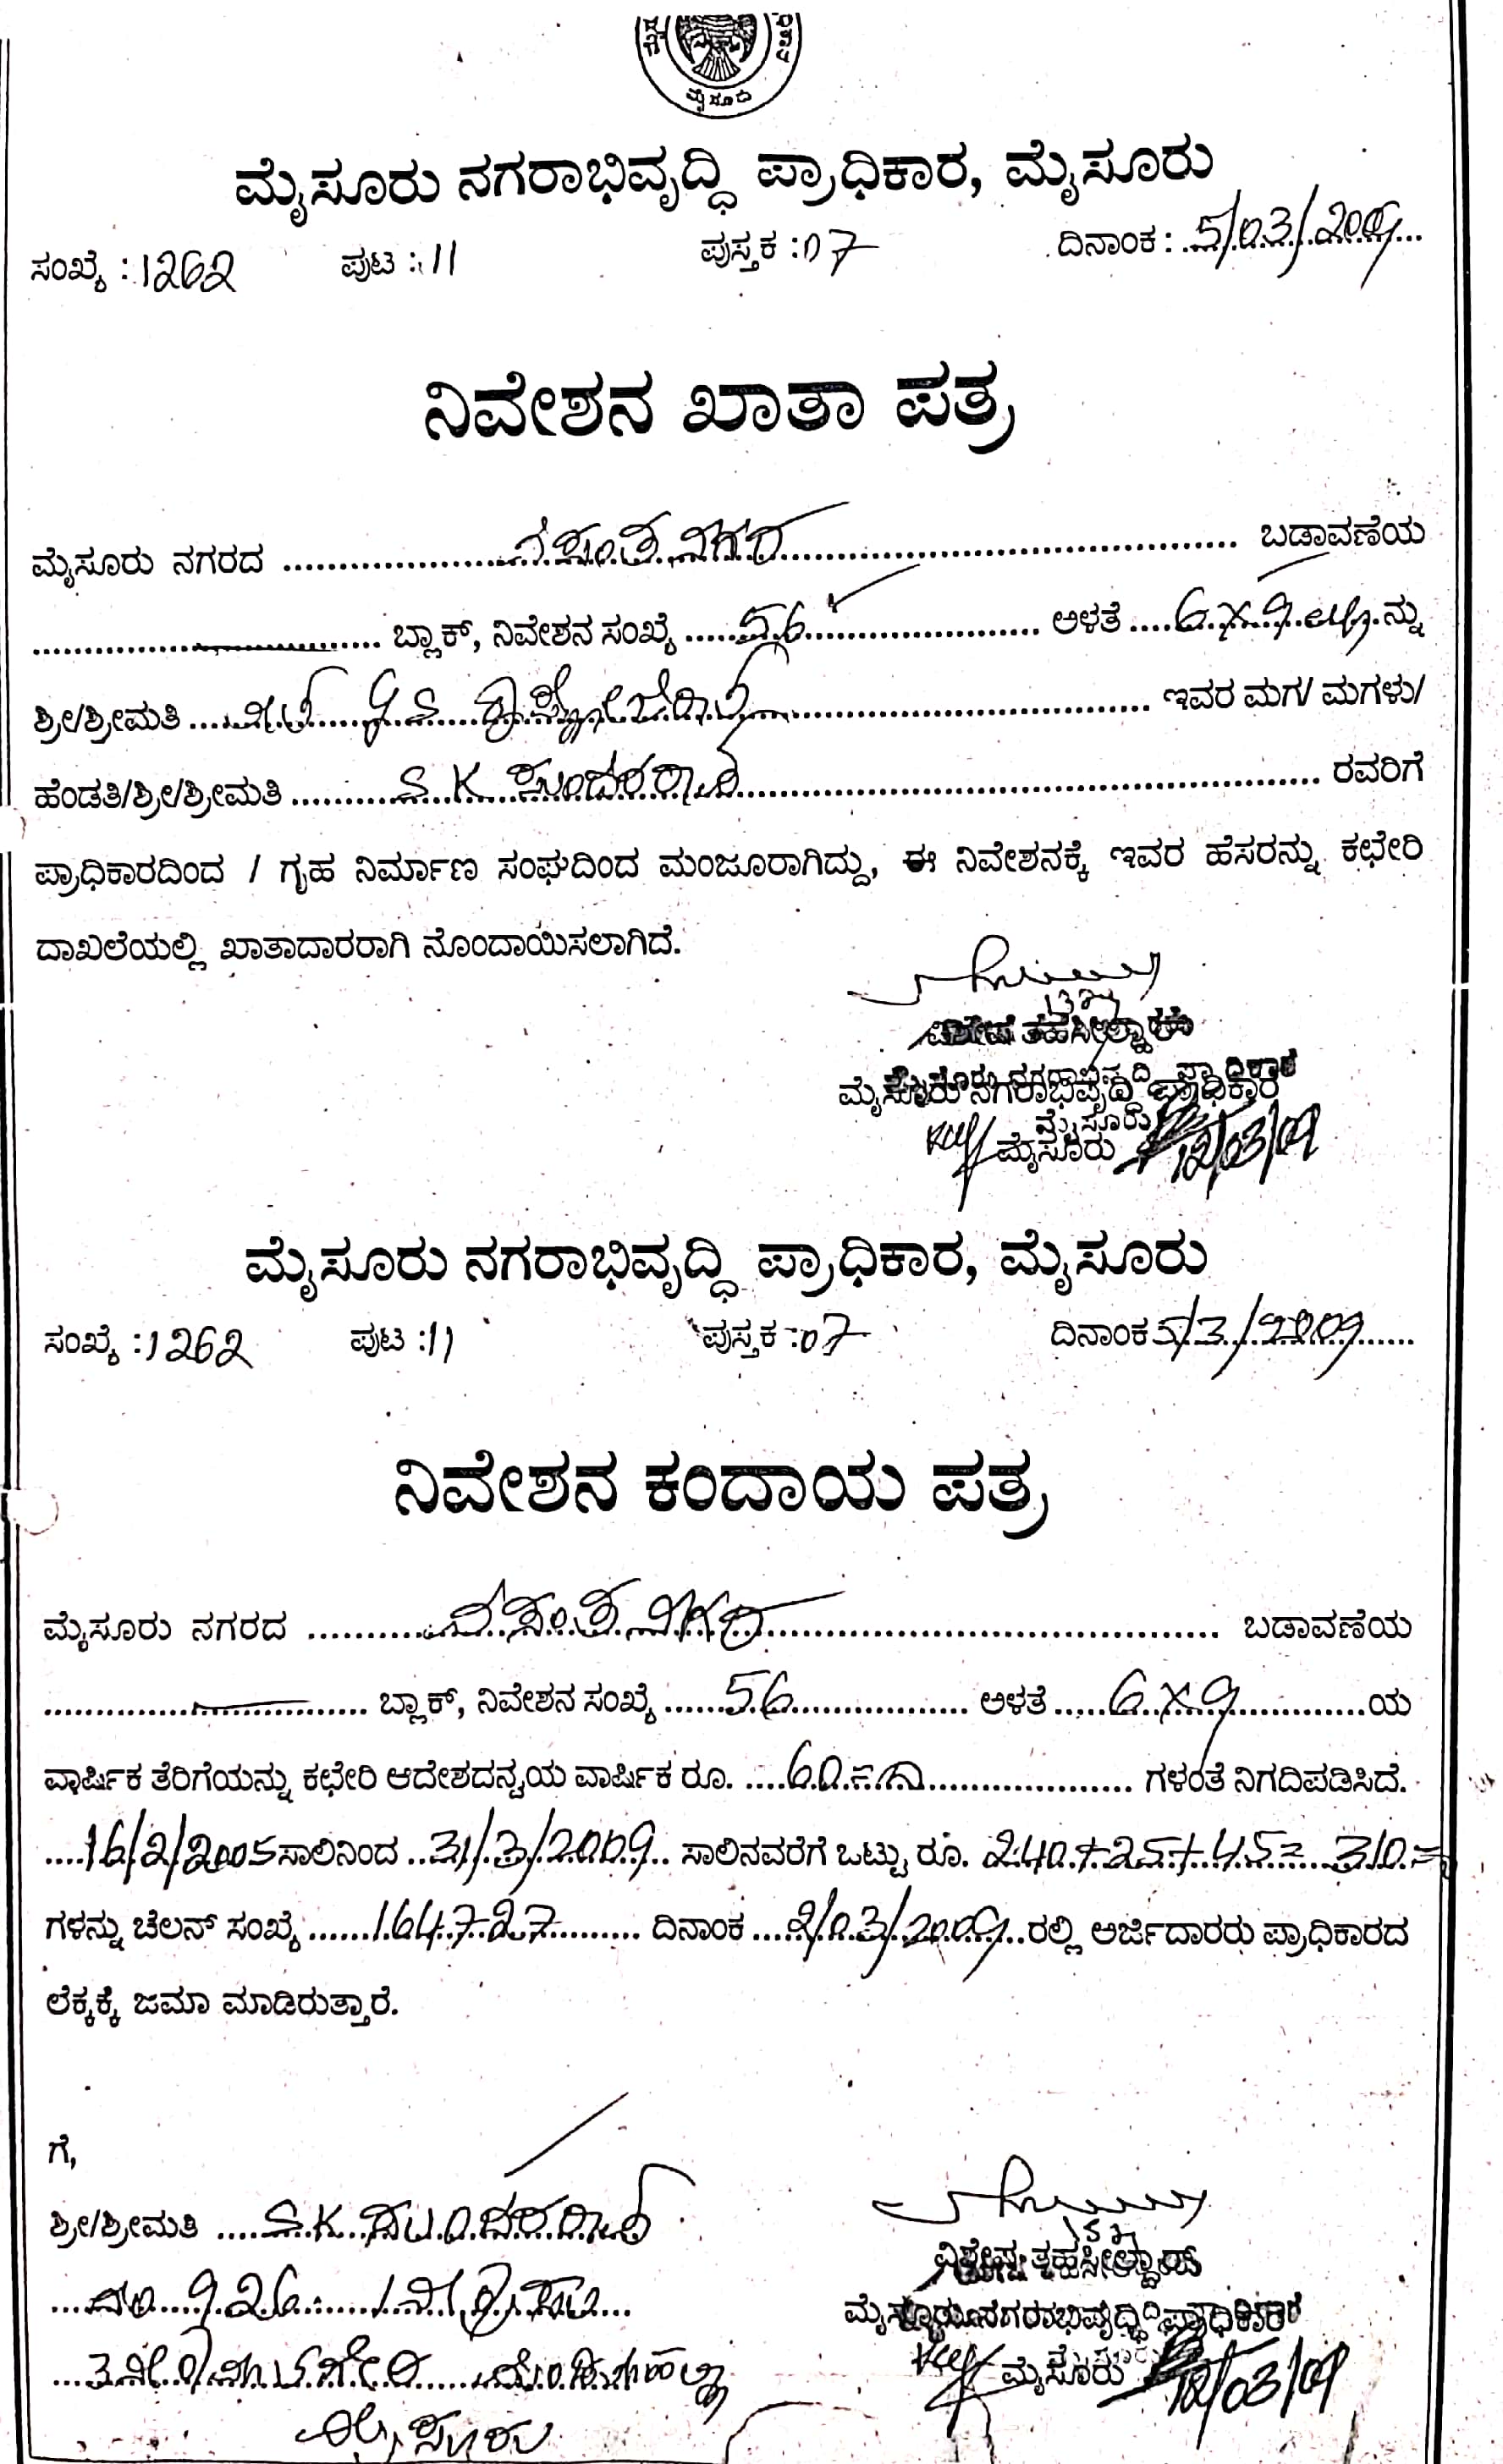 ಮೈಸೂರು
ಮೈಸೂರು ನಗರಾಭಿವೃದ್ಧಿ ಪ್ರಾಧಿಕಾರ, ಮೈಸೂರು
ಸಂಖ್ಯೆ : 1262 ಪುಟ : 11 ಪುಸ್ತಕ : 07 ದಿನಾಂಕ : 5/03/2009
ನಿವೇಶನ ಖಾತಾ ಪತ್ರ
ಮೈಸೂರು ನಗರದ ವಸಂತ ನಗರ ಬಡಾವಣೆಯ
ಬ್ಲಾಕ್, ನಿವೇಶನ ಸಂಖ್ಯೆ 56 ಅಳತೆ 6 x 9 ನ್ನು
ಶ್ರೀ/ಶ್ರೀಮತಿ ಇವರ ಮಗ/ ಮಗಳು/
ಹೆಂಡತಿ/ಶ್ರೀ/ಶ್ರೀಮತಿ S K ಸುಂದರರಾಜ್ ರವರಿಗೆ
ಪ್ರಾಧಿಕಾರದಿಂದ / ಗೃಹ ನಿರ್ಮಾಣ ಸಂಘದಿಂದ ಮಂಜೂರಾಗಿದ್ದು, ಈ ನಿವೇಶನಕ್ಕೆ ಇವರ ಹೆಸರನ್ನು ಕಛೇರಿ
ದಾಖಲೆಯಲ್ಲಿ ಖಾತಾದಾರರಾಗಿ ನೊಂದಾಯಿಸಲಾಗಿದೆ.
ವಿಶೇಷ ತಹಸೀಲ್ದಾರ್
ಮೈಸೂರು ನಗರಾಭಿವೃದ್ಧಿ ಪ್ರಾಧಿಕಾರ
ಮೈಸೂರು 12/03/09
ಮೈಸೂರು ನಗರಾಭಿವೃದ್ಧಿ ಪ್ರಾಧಿಕಾರ, ಮೈಸೂರು
ಸಂಖ್ಯೆ : 1262 ಪುಟ : 11 ಪುಸ್ತಕ : 07 ದಿನಾಂಕ 5/3/2009
ನಿವೇಶನ ಕಂದಾಯ ಪತ್ರ
ಮೈಸೂರು ನಗರದ ವಸಂತ ನಗರ ಬಡಾವಣೆಯ
ಬ್ಲಾಕ್, ನಿವೇಶನ ಸಂಖ್ಯೆ 56 ಅಳತೆ 6 x 9 ಯ
ವಾರ್ಷಿಕ ತೆರಿಗೆಯನ್ನು ಕಛೇರಿ ಆದೇಶದನ್ವಯ ವಾರ್ಷಿಕ ರೂ. 60=00 ಗಳಂತೆ ನಿಗದಿಪಡಿಸಿದೆ.
16/2/2005 ಸಾಲಿನಿಂದ 31/3/2009 ಸಾಲಿನವರೆಗೆ ಒಟ್ಟು ರೂ. 240+25+45= 310=
ಗಳನ್ನು ಚೆಲನ್ ಸಂಖ್ಯೆ 164727 ದಿನಾಂಕ 2/03/2009 ರಲ್ಲಿ ಅರ್ಜಿದಾರರು ಪ್ರಾಧಿಕಾರದ
ಲೆಕ್ಕಕ್ಕೆ ಜಮಾ ಮಾಡಿರುತ್ತಾರೆ.
ಗೆ,
ಶ್ರೀ/ಶ್ರೀಮತಿ S.K ಸುಂದರರಾಜ್
ನಂ 926
ವಿಶೇಷ ತಹಸೀಲ್ದಾರ್
ಮೈಸೂರು ನಗರಾಭಿವೃದ್ಧಿ ಪ್ರಾಧಿಕಾರ
ಮೈಸೂರು 12/03/09